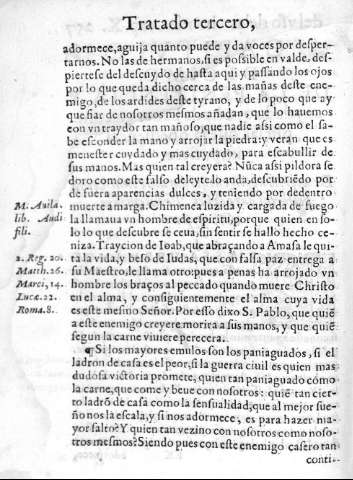 Tratado tercero,
adormece, aguija quanto puede y da voces por desper-
tarnos. No las de hermanos, si es possible en valde. des-
piertese del descuydo de hasta aqui y passando los ojos
por lo que queda dicho cerca de las mañas deste ene-
migo, de los ardides deste tyrano, y de lo poco que ay
que fiar de nosotros mesmos añadan, que lo hauemos
con vn traydor tan mañoso, que nadie assi como el sa-
be esconder la mano y arrojar la piedra: y veran que es
menester cuydado y mas cuydado, para escabullir de
sus manos. Mas quien tal creyera? Nũca assi pildora se
doro como este falso deleyte blando, descubriẽdo por
de fuera aparencias dulces, y teniendo por dedentro
muerte amarga. Chimenea luzida y cargada de fuego
la llamaua vn hombre de espiritu, porque quien en so-
lo lo que descubre se ceua, sin sentir se hallo hecho ce-
niza. Trayciõn de Ioab, que abraçando a Amasa le qui-
ta la vida, y beso de Iudas, que con falsa paz entrega a
su Maestro, le llama otro: pues a penas ha arrojado vn
hombre los braços al peccado quando muere Christo
en el alma, y consiguientemente el alma cuya vida
es este mesmo Señor. Por esso dixo S. Pablo, que quiẽ
a este enemigo creyere morira a sus manos, y que quiẽ
segun la carne viuiere perecera.
¶ Si los mayores emulos son los paniaguados, si el
ladron de casa es el peor, si la guerra ciuil es quien mas
dudosa victoria promete, quien tan paniaguado como
la carne, que come y beue con nosotros: quiẽ tan cier-
to ladrõ de casa como la sensualidad, que al mejor sue-
ño nos la escala, y si nos adormece, es para hazer ma-
yor salto? Y quien tan vezino con nosotros como noso-
tros mesmos? Siendo pues con este enemigo casero tan
conti-
M. Auila.
lib. Audi
fili.
2. Reg. 20.
Matth. 26.
Marci, 14.
Lucæ. 22.
Roma. 8.